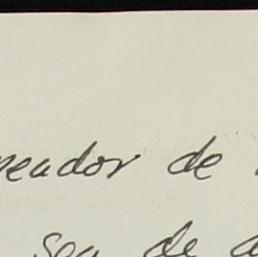 eador de
sea de a